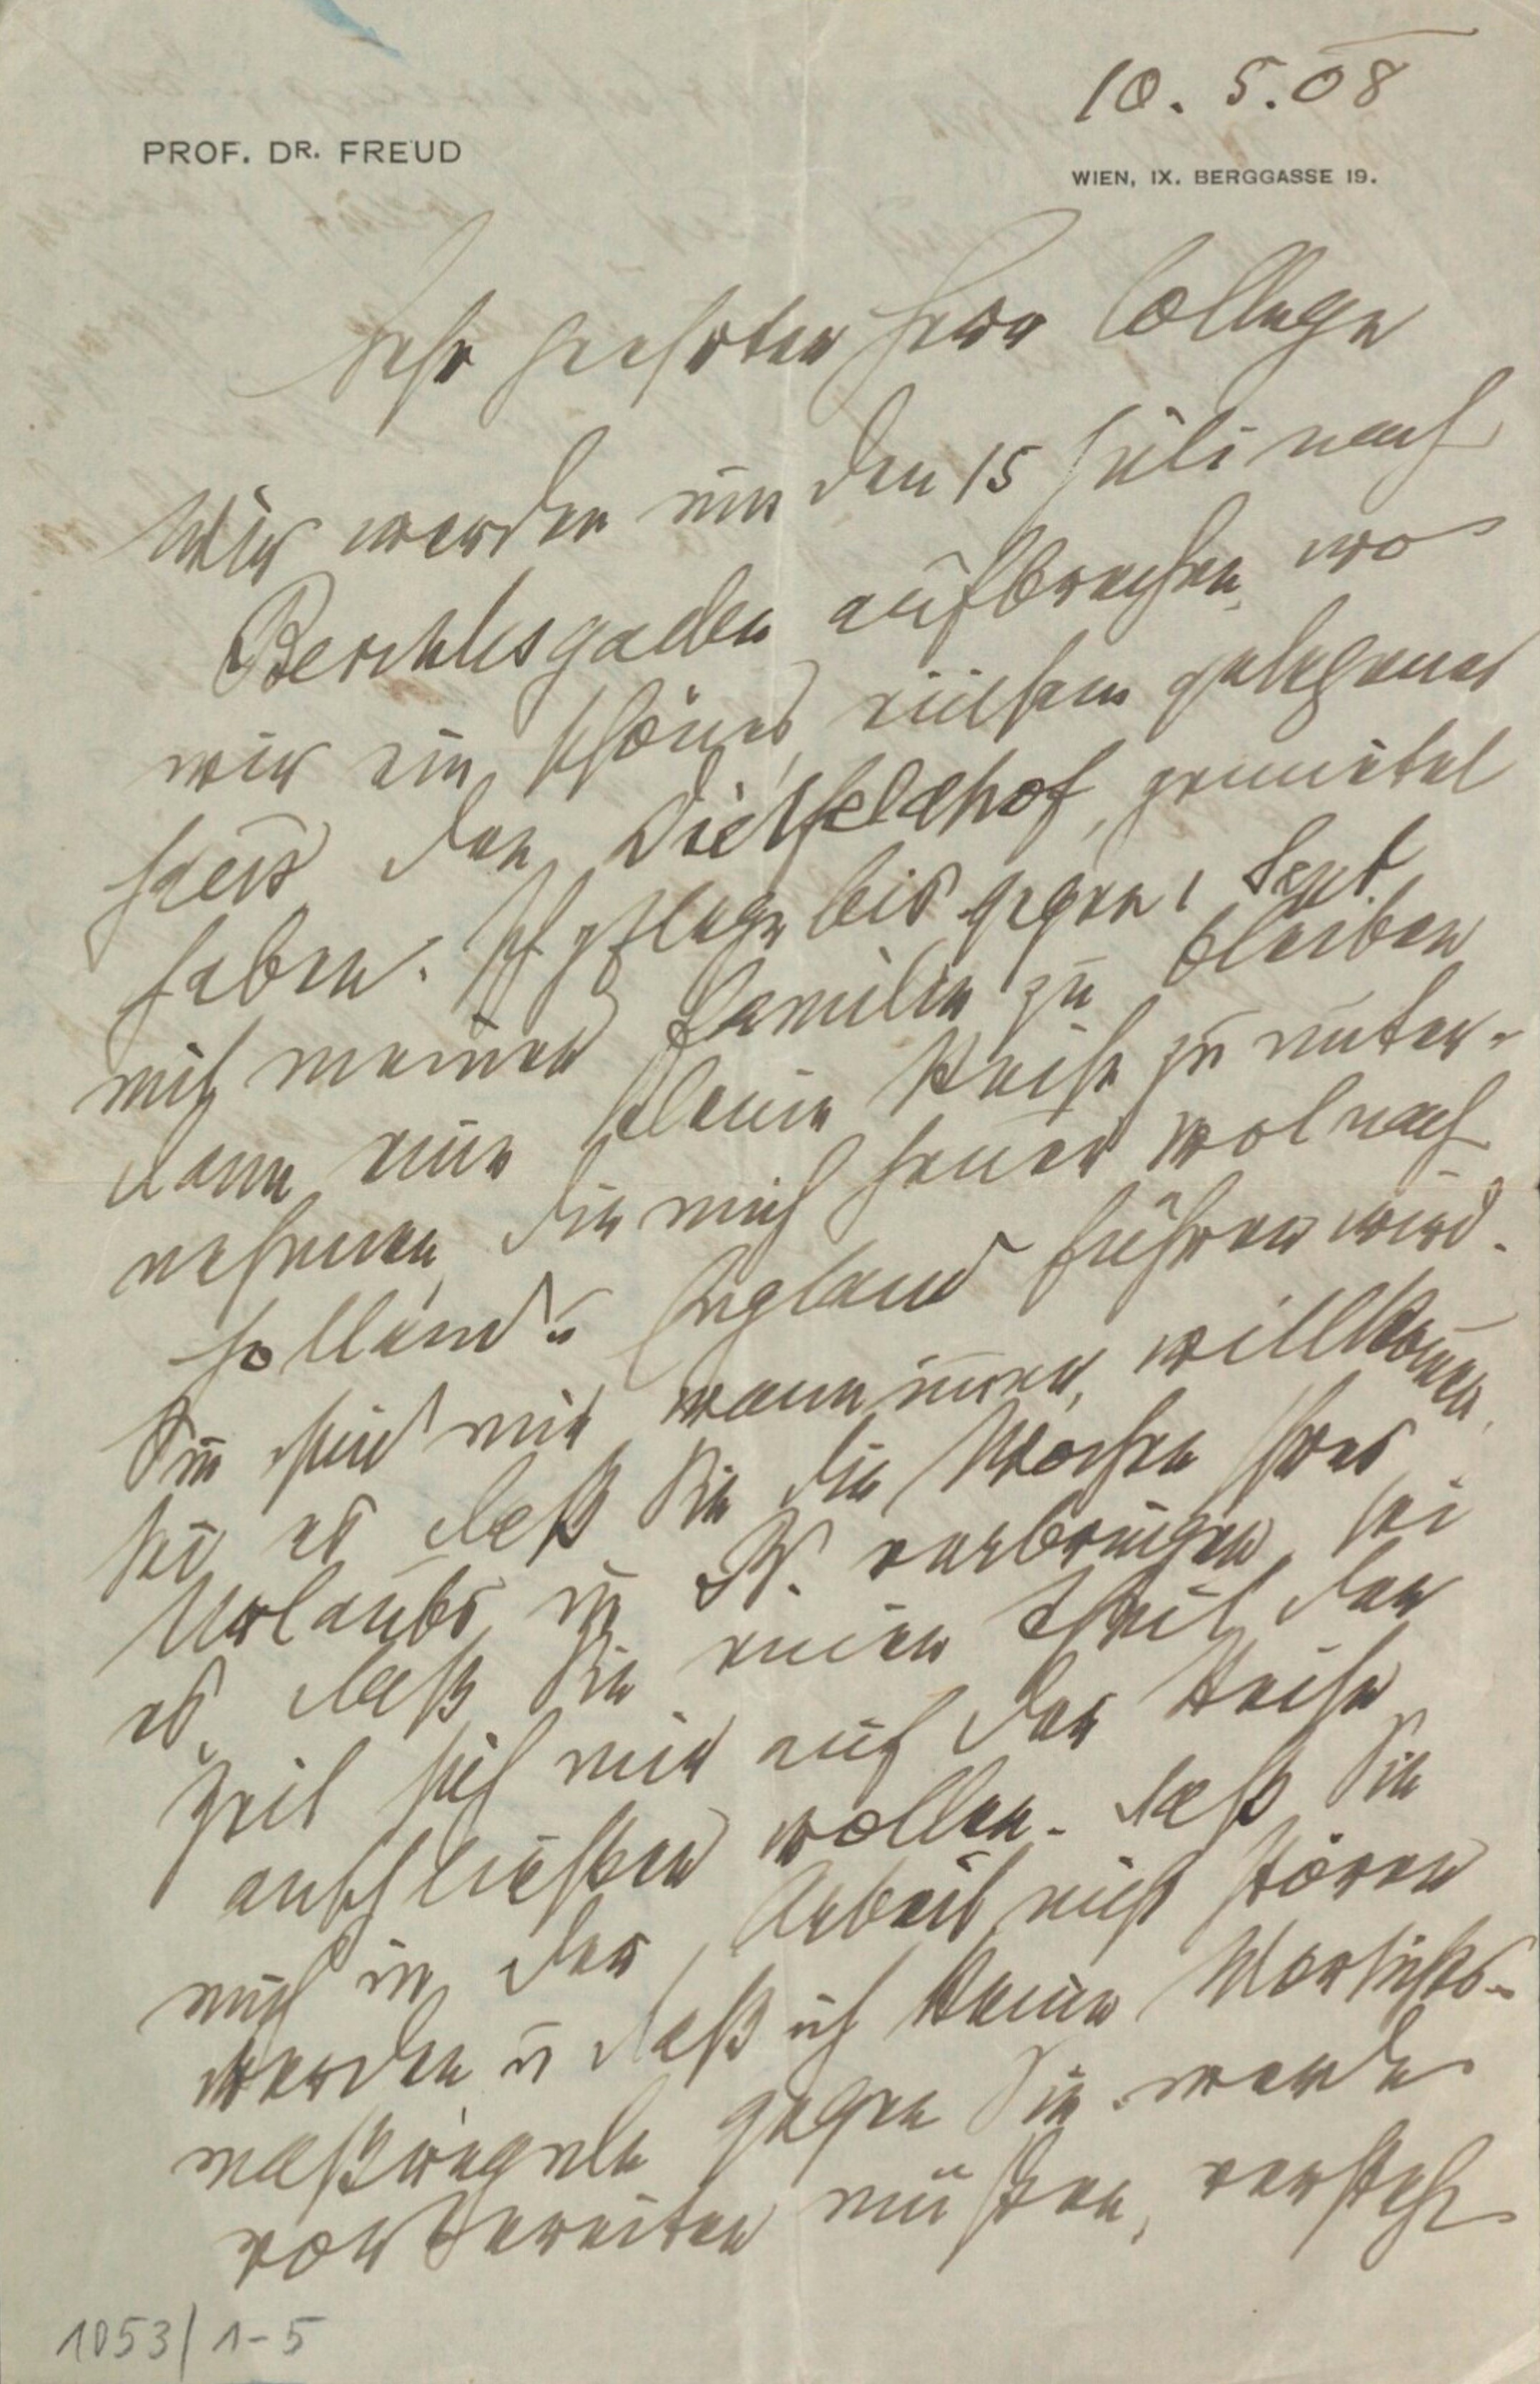 10. 5. 08
PROF. DR. FREUD
WIEN, IX. BERGGASSE 19.
Sehr geehrter Herr College
Wir werden um den 15 Juli nach
Berchtesgaden aufbrechen, wo
wir ein schönes, einsam gelegenes
Haus, den Dietfeldhof, gemietet
haben. Ich pflege bis gegen 1 Sept
mit meiner Familie zu bleiben
dann eine kleine Reise zu unter-
nehmen, die mich heuer wol nach
Holland u England führen wird.
Sie sind mir, wann immer, willkom̄en,
sei es daß Sie die Wochen Ihres
Urlaubs in B. verbringen, sei
es, daß Sie einen Theil der
Zeit sich mir auf der Reise
anschließen wollen. Daß Sie
mich in der Arbeit nicht stören
werden u daß ich keine Vorsichts-
maßregeln gegen Sie werde
vorbereiten müßen, versteht
1053/1-5